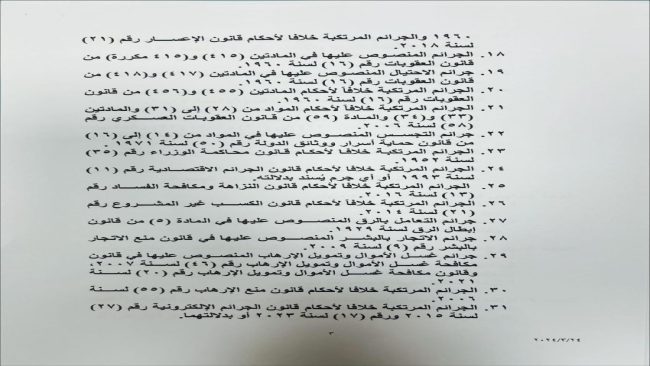 ١٩٦٠ والجرائم المرتكبة خلافا لأحكام قانون الإعسار رقم (٢١)
لسنة ٢٠١٨.
١٨. الجرائم المنصوص عليها في المادتين (٤١٥) و(٤١٥ مكررة) من
قانون العقوبات رقم (١٦) لسنة ١٩٦٠.
١٩. جرائم الاحتيال المنصوص عليها في المادتين (٤١٧) و(٤١٨) من
قانون العقوبات رقم (١٦) لسنة ١٩٦٠.
٢٠. الجرائم المرتكبة خلافا لأحكام المادتين (٤٥٥) و(٤٥٦) من قانون
العقوبات رقم (١٦) لسنة ١٩٦٠.
٢١. الجرائم المرتكبة خلافا لأحكام المواد من (٢٨) إلى (٣١) والمادتين
(٣٣) و(٣٤) والمادة (٥٩) من قانون العقوبات العسكري رقم
(٥٨) لسنة ٢٠٠٦.
٢٢. جرائم التجسس المنصوص عليها في المواد من (١٤) إلى (١٦)
من قانون حماية اسرار ووثائق الدولة رقم (٥٠) لسنة ١٩٧١.
٢٣. الجرائم المرتكبة خلافا لأحكام قانون محاكمة الوزراء رقم (٣٥)
لسنة ١٩٥٢.
٢٤. الجرائم المرتكبة خلافا لأحكام قانون الجرائم الاقتصادية رقم (١١)
لسنة ١٩٩٣ أو اي جرم يُسند بدلالته.
٢٥. الجرائم المرتكبة خلافا لأحكام قانون النزاهة ومكافحة الفساد رقم
(١٣) لسنة ٢٠١٦.
٢٦. الجرائم المرتكبة خلافا لأحكام قانون الكسب غير المشروع رقم
(٢١) لسنة ٢٠١٤.
٢٧. جرائم التعامل بالرق المنصوص عليها في المادة (٥) من قانون
إبطال الرق لسنة ١٩٢٩.
٢٨. جرائم الاتجار بالبشر المنصوص عليها في قانون منع الاتجار
بالبشر رقم (٩) لسنة ٢٠٠٩.
٢٩. جرائم غسل الأموال وتمويل الإرهاب المنصوص عليها في قانون
مكافحة غسل الأموال وتمويل الإرهاب رقم (٤٦) لسنة ٢٠٠٧،
وقانون مكافحة غسل الأموال وتمويل الإرهاب رقم (٢٠) لسنة
٢٠٢١.
٣٠. الجرائم المرتكبة خلافا لأحكام قانون منع الإرهاب رقم (٥٥) لسنة
٢٠٠٦.
٣١. الجرائم المرتكبة خلافا لأحكام قانون الجرائم الإلكترونية رقم (٢٧)
لسنة ٢٠١٥ ورقم (١٧) لسنة ٢٠٢٣ أو بدلالتهما.
٣
٢٠٢٤/٣/٢٤